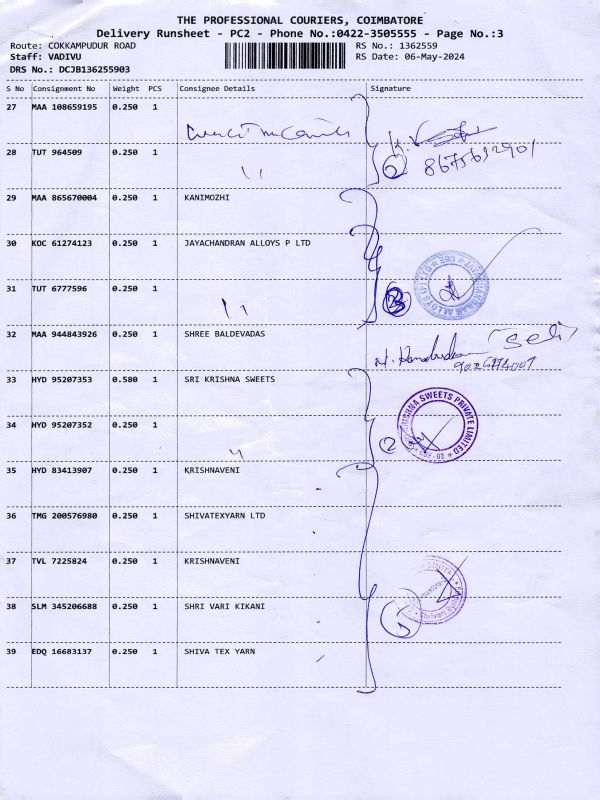 THE PROFESSIONAL COURIERS, COIMBATORE
Delivery Runsheet - PC2 - Phone No.:0422-3505555 - Page No.:3
Route: COKKAMPUDUR ROAD RS No.: 1362559
Staff: VADIVU RS Date: 06-May-2024
DRS No.: DCJB136255903
S No Consignment No Weight PCS Consignee Details Signature
27 MAA 108659195 0.250 1
28 TUT 964509 0.250 1
2 8675692901
29 MAA 865670004 0.250 1 KANIMOZHI
30 KOC 61274123 0.250 1 JAYACHANDRAN ALLOYS P LTD
31 TUT 6777596 0.250 1
32 MAA 944843926 0.250 1 SHREE BALDEVADAS
Self
33 HYD 95207353 0.580 1 SRI KRISHNA SWEETS
KRISHNA SWEETS PRIVATE LIMITED
34 HYD 95207352 0.250 1
2
35 HYD 83413907 0.250 1 KRISHNAVENI
36 TMG 200576980 0.250 1 SHIVATEXYARN LTD
37 TVL 7225824 0.250 1 KRISHNAVENI
38 SLM 345206688 0.250 1 SHRI VARI KIKANI
39 EDQ 16683137 0.250 1 SHIVA TEX YARN